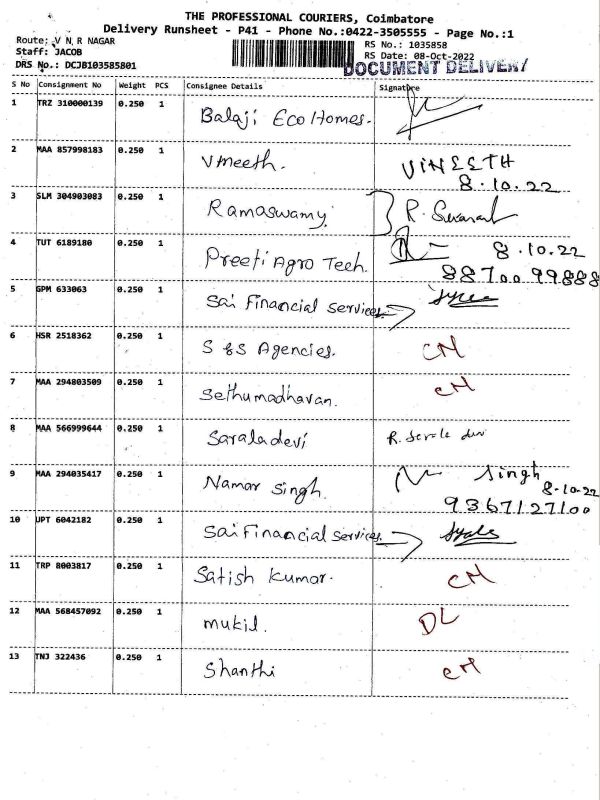 THE PROFESSIONAL COURIERS, Coimbatore
Delivery Runsheet - P41 - Phone No.:0422-3505555 - Page No.:1
Route: V N R NAGAR
Staff: JACOB
DRS No.: DCJB103585801
RS No.: 1035858
RS Date: 08-Oct-2022
DOCUMENT DELIVERY
S No Consignment No Weight PCS Consignee Details Signature
1 TRZ 310000139 0.250 1 Balaji EcoHomes.
2 MAA 857998183 0.250 1 Vineeth. VINEETH
8.10.22
3 SLM 304903083 0.250 1 Ramaswamy R.
4 TUT 6189180 0.250 1 Preeti Agro Tech. 8.10.22
88700 99888
5 GPM 633063 0.250 1 Sai Financial Services
6 HSR 2518362 0.250 1 S &S Agencies. CM
7 MAA 294803509 0.250 1 Sethumadhavan. CM
8 MAA 566999644 0.250 1 Saraladevi R.
9 MAA 294035417 0.250 1 Namar Singh Singh
8-10-22
9367127100
10 UPT 6042182 0.250 1 Sai Financial Services.
11 TRP 8003817 0.250 1 Satish Kumar. CM
12 MAA 568457092 0.250 1 mukil. DL
13 TNJ 322436 0.250 1 Shanthi CM